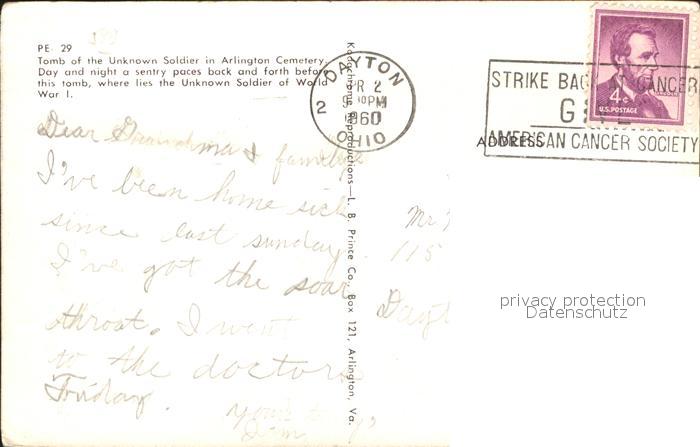 PE 29
Tomb of the Unknown Soldier in Arlington Cemetery.
Day and night a sentry paces back and forth before
this tomb, where lies the Unknown Soldier of World
War I.
DAYTON
2
PM
1960
OHIO
STRIKE BACK AT CANCER
AMERICAN CANCER SOCIETY
4¢
U.S. POSTAGE
ADDRESS
Kodachrome Reproductions—L. B. Prince Co., Box 121, Arlington, Va.
Dear Grandma & family
I've been home sick
since last sunday.
I've got the soar
throat. I went
to the doctors
Friday.
Jim
Mr
115
Dayt
privacy protection
Datenschutz